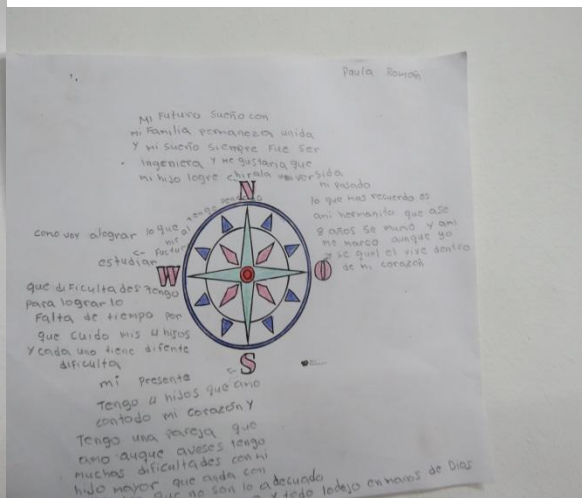 Paula Román
Mi Futuro Sueño con
mi Familia permanezca unida
y mi sueño siempre fue ser
Ingeniera y me gustaria que
mi hijo logre
N
Tengo
mi pasado
lo que mas recuerdo es
a mi hermanito que ase
8 años se murio y ami
me marco aunque yo
se quel el vive dentro
de mi corazon
O
como voy alograr lo que
mi
estudiar
W
que dificultades tengo
para lograrlo
Falta de tiempo por
que cuido mis 4 hijos
y cada uno tiene difente
dificulta
S
mi presente
Tengo 4 hijos que amo
contodo mi corazon y
Tengo una pareja que
amo auque aveses tengo
muchas dificultades con mi
hijo mayor que anda con
que no son lo adecuado
y todo lo dejo en manos de Dios